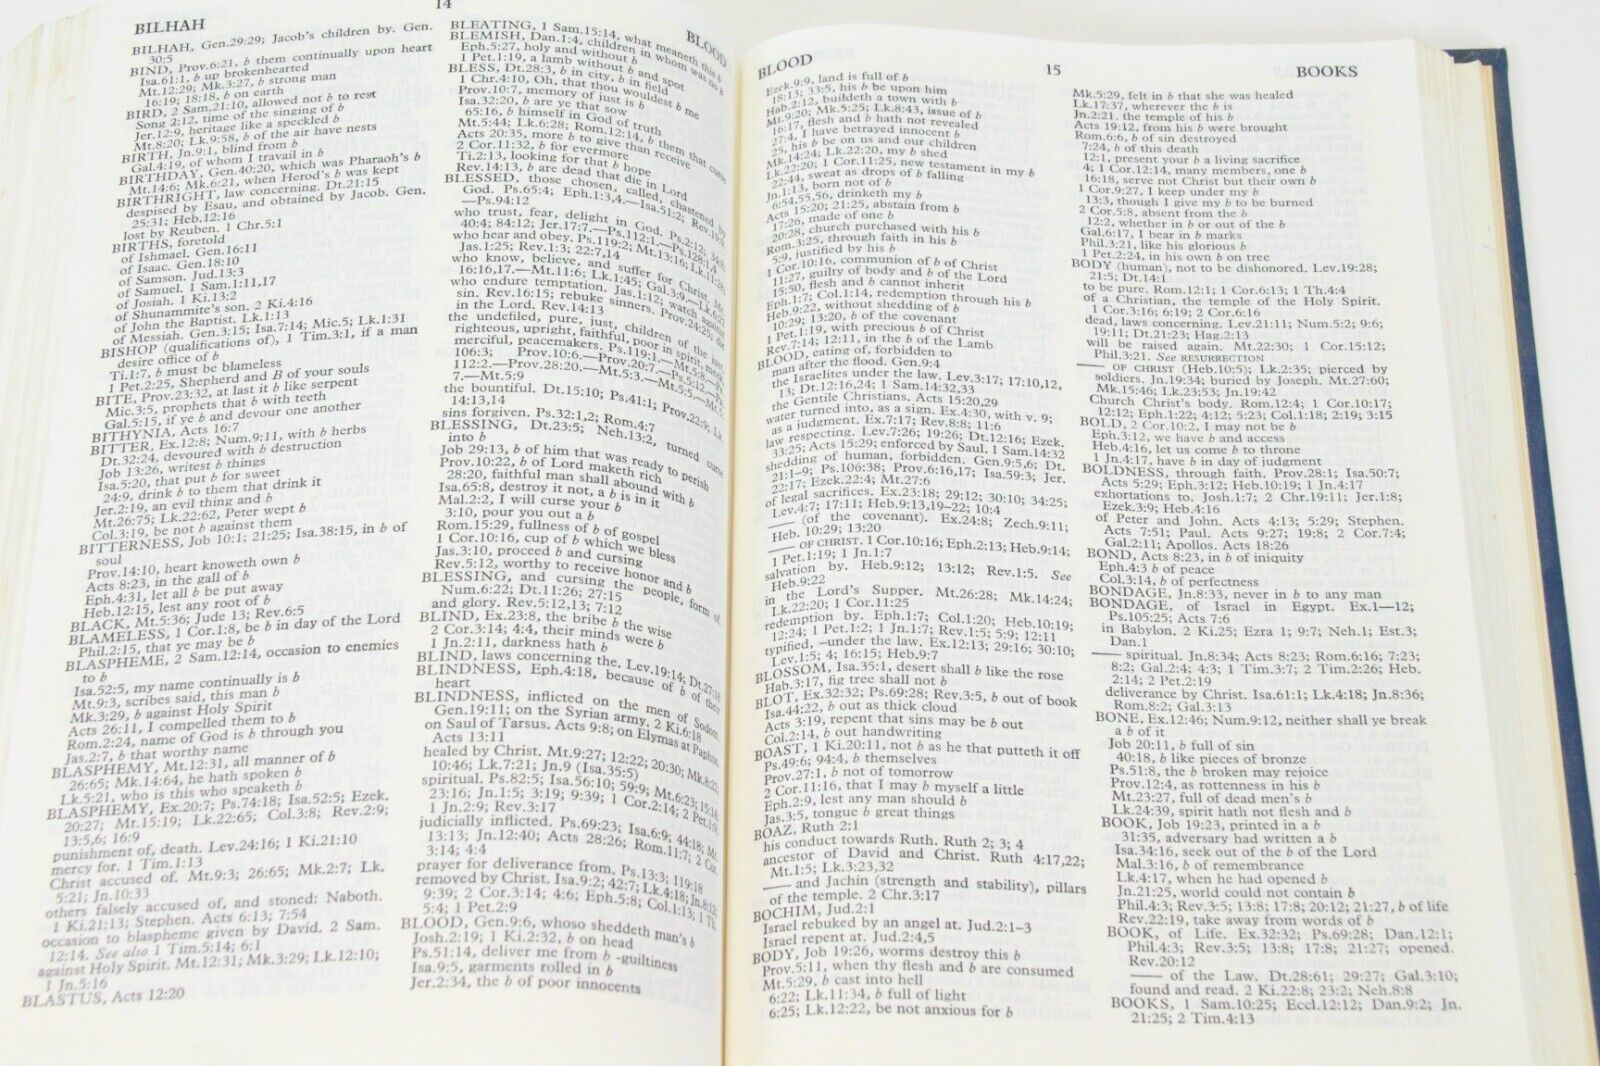 BILHAH
14
BLOOD
BILHAH, Gen.29:29; Jacob's children by. Gen.
30:5
BIND, Prov.6:21, b them continually upon heart
Isa.61:1, b up brokenhearted
Mt.12:29; Mk.3:27, b strong man
16:19; 18:18, b on earth
BIRD, 2 Sam.21:10, allowed not b to rest
Song 2:12, time of the singing of b
Jer.12:9, heritage like a speckled b
Mt.8:20; Lk.9:58, b of the air have nests
BIRTH, Jn.9:1, blind from b
Gal.4:19, of whom I travail in b
BIRTHDAY, Gen.40:20, which was Pharaoh's b
Mt.14:6; Mk.6:21, when Herod's b was kept
BIRTHRIGHT, law concerning. Dt.21:15
despised by Esau, and obtained by Jacob. Gen.
25:31; Heb.12:16
lost by Reuben. 1 Chr.5:1
BIRTHS, foretold
of Ishmael. Gen.16:11
of Isaac. Gen.18:10
of Samson. Jud.13:3
of Samuel. 1 Sam.1:11,17
of Josiah. 1 Ki.13:2
of Shunammite's son. 2 Ki.4:16
of John the Baptist. Lk.1:13
of Messiah. Gen.3:15; Isa.7:14; Mic.5; Lk.1:31
BISHOP (qualifications of), 1 Tim.3:1, if a man
desire office of b
Ti.1:7, b must be blameless
1 Pet.2:25, Shepherd and B of your souls
BITE, Prov.23:32, at last it b like serpent
Mic.3:5, prophets that b with teeth
Gal.5:15, if ye b and devour one another
BITHYNIA, Acts 16:7
BITTER, Ex.12:8; Num.9:11, with b herbs
Dt.32:24, devoured with b destruction
Job 13:26, writest b things
Isa.5:20, that put b for sweet
24:9, drink b to them that drink it
Jer.2:19, an evil thing and b
Mt.26:75; Lk.22:62, Peter wept b
Col.3:19, be not b against them
BITTERNESS, Job 10:1; 21:25; Isa.38:15, in b of
soul
Prov.14:10, heart knoweth own b
Acts 8:23, in the gall of b
Eph.4:31, let all b be put away
Heb.12:15, lest any root of b
BLACK, Mt.5:36; Jude 13; Rev.6:5
BLAMELESS, 1 Cor.1:8, be b in day of the Lord
Phil.2:15, that ye may be b
BLASPHEME, 2 Sam.12:14, occasion to enemies
to b
Isa.52:5, my name continually is b
Mt.9:3, scribes said, this man b
Mk.3:29, b against Holy Spirit
Acts 26:11, I compelled them to b
Rom.2:24, name of God is b through you
Jas.2:7, b that worthy name
BLASPHEMY, Mt.12:31, all manner of b
26:65; Mk.14:64, he hath spoken b
Lk.5:21, who is this who speaketh b
BLASPHEMY, Ex.20:7; Ps.74:18; Isa.52:5; Ezek.
20:27; Mt.15:19; Lk.22:65; Col.3:8; Rev.2:9;
13:5,6; 16:9
punishment of, death. Lev.24:16; 1 Ki.21:10
mercy for. 1 Tim.1:13
Christ accused of. Mt.9:3; 26:65; Mk.2:7; Lk.
5:21; Jn.10:33
others falsely accused of, and stoned: Naboth.
1 Ki.21:13; Stephen. Acts 6:13; 7:54
occasion to blaspheme given by David. 2 Sam.
12:14. See also 1 Tim.5:14; 6:1
against Holy Spirit. Mt.12:31; Mk.3:29; Lk.12:10;
1 Jn.5:16
BLASTUS, Acts 12:20
BLEATING, 1 Sam.15:14, what meaneth this b
BLEMISH, Dan.1:4, children in whom was no b
Eph.5:27, holy and without b
1 Pet.1:19, a lamb without b and spot
BLESS, Dt.28:3, b in city, b in field
1 Chr.4:10, Oh, that thou wouldest b me
Prov.10:7, memory of just is b
Isa.32:20, b are ye that sow
65:16, b himself in God of truth
Mt.5:44; Lk.6:28; Rom.12:14, b them that curse
Acts 20:35, more b to give than receive
2 Cor.11:32, b for evermore
Ti.2:13, looking for that b hope
Rev.14:13, b are dead that die in Lord
BLESSED, those chosen, called, chastened by
God. Ps.65:4; Eph.1:3,4.—Isa.51:2; Rev.19:9.
—Ps.94:12
who trust, fear, delight in God. Ps.2:12; 34:8;
40:4; 84:12; Jer.17:7.—Ps.112:1.—Ps.128:1,4
who hear and obey. Ps.119:2; Mt.13:16; Lk.11:28;
Jas.1:25; Rev.1:3; 22:7,14
who know, believe, and suffer for Christ. Mt.
16:16,17.—Mt.11:6; Lk.1:45; Gal.3:9.—Lk.6:22
who endure temptation. Jas.1:12; watch against
sin. Rev.16:15; rebuke sinners. Prov.24:25; die
in the Lord. Rev.14:13
the undefiled, pure, just, children of the just,
righteous, upright, faithful, poor in spirit, meek,
merciful, peacemakers. Ps.119:1.—Mt.5:8;
106:3; Prov.10:6.—Prov.20:7.—Ps.5:12.
112:2.—Prov.28:20.—Mt.5:3.—Mt.5:5.—Mt.5:
7.—Mt.5:9
the bountiful. Dt.15:10; Ps.41:1; Prov.22:9; Lk.
14:13,14
sins forgiven. Ps.32:1,2; Rom.4:7
BLESSING, Dt.23:5; Neh.13:2, turned curse
into b
Job 29:13, b of him that was ready to perish
Prov.10:22, b of Lord maketh rich
28:20, faithful man shall abound with b
Isa.65:8, destroy it not, a b is in it
Mal.2:2, I will curse your b
3:10, pour you out a b
Rom.15:29, fullness of b of gospel
1 Cor.10:16, cup of b which we bless
Jas.3:10, proceed b and cursing
Rev.5:12, worthy to receive honor and b
BLESSING, and cursing the people, form of,
Num.6:22; Dt.11:26; 27:15
and glory. Rev.5:12,13; 7:12
BLIND, Ex.23:8, the bribe b the wise
2 Cor.3:14; 4:4, their minds were b
1 Jn.2:11, darkness hath b
BLIND, laws concerning the. Lev.19:14; Dt.27:18
BLINDNESS, Eph.4:18, because of b of their
heart
BLINDNESS, inflicted on the men of Sodom.
Gen.19:11; on the Syrian army. 2 Ki.6:18
on Saul of Tarsus. Acts 9:8; on Elymas at Paphos.
Acts 13:11
healed by Christ. Mt.9:27; 12:22; 20:30; Mk.8:22;
10:46; Lk.7:21; Jn.9 (Isa.35:5)
spiritual. Ps.82:5; Isa.56:10; 59:9; Mt.6:23; 15:14;
23:16; Jn.1:5; 3:19; 9:39; 1 Cor.2:14; 2 Pet.1:9;
1 Jn.2:9; Rev.3:17
judicially inflicted. Ps.69:23; Isa.6:9; 44:18; Mt.
13:13; Jn.12:40; Acts 28:26; Rom.11:7; 2 Cor.
3:14; 4:4
prayer for deliverance from. Ps.13:3; 119:18
removed by Christ. Isa.9:2; 42:7; Lk.4:18; Jn.8:12;
9:39; 2 Cor.3:14; 4:6; Eph.5:8; Col.1:13; 1 Th.
5:4; 1 Pet.2:9
BLOOD, Gen.9:6, whoso sheddeth man's b
Josh.2:19; 1 Ki.2:32, b on head
Ps.51:14, deliver me from b -guiltiness
Isa.9:5, garments rolled in b
Jer.2:34, the b of poor innocents
BLOOD
15
BOOKS
Ezek.9:9, land is full of b
18:13; 33:5, his b be upon him
Hab.2:12, buildeth a town with b
Mt.9:20; Mk.5:25; Lk.8:43, issue of b
16:17, flesh and b hath not revealed
27:4, I have betrayed innocent b
25, his b be on us and our children
Mk.14:24; Lk.22:20, my b shed
Lk.22:20; 1 Cor.11:25, new testament in my b
22:44, sweat as drops of b falling
Jn.1:13, born not of b
6:54,55,56, drinketh my b
Acts 15:20; 21:25, abstain from b
17:26, made of one b
20:28, church purchased with his b
Rom.3:25, through faith in his b
5:9, justified by his b
1 Cor.10:16, communion of b of Christ
11:27, guilty of body and b of the Lord
15:50, flesh and b cannot inherit
Eph.1:7; Col.1:14, redemption through his b
Heb.9:22, without shedding of b
10:29; 13:20, b of the covenant
1 Pet.1:19, with precious b of Christ
Rev.7:14; 12:11, in the b of the Lamb
BLOOD, eating of, forbidden to
man after the flood. Gen.9:4
the Israelites under the law. Lev.3:17; 17:10,12,
13; Dt.12:16,24; 1 Sam.14:32,33
the Gentile Christians. Acts 15:20,29
water turned into, as a sign. Ex.4:30, with v. 9;
as a judgment. Ex.7:17; Rev.8:8; 11:6
law respecting. Lev.7:26; 19:26; Dt.12:16; Ezek.
33:25; Acts 15:29; enforced by Saul. 1 Sam.14:32
shedding of human, forbidden. Gen.9:5,6; Dt.
21:1–9; Ps.106:38; Prov.6:16,17; Isa.59:3; Jer.
22:17; Ezek.22:4; Mt.27:6
of legal sacrifices. Ex.23:18; 29:12; 30:10; 34:25;
Lev.4:7; 17:11; Heb.9:13,19–22; 10:4
—— (of the covenant). Ex.24:8; Zech.9:11;
Heb. 10:29; 13:20
—— OF CHRIST. 1 Cor.10:16; Eph.2:13; Heb.9:14;
1 Pet.1:19; 1 Jn.1:7
salvation by. Heb.9:12; 13:12; Rev.1:5. See
Heb.9:22
in the Lord's Supper. Mt.26:28; Mk.14:24;
Lk.22:20; 1 Cor.11:25
redemption by. Eph.1:7; Col.1:20; Heb.10:19;
12:24; 1 Pet.1:2; 1 Jn.1:7; Rev.1:5; 5:9; 12:11
typified, –under the law. Ex.12:13; 29:16; 30:10;
Lev.1:5; 4; 16:15; Heb.9:7
BLOSSOM, Isa.35:1, desert shall b like the rose
Hab.3:17, fig tree shall not b
BLOT, Ex.32:32; Ps.69:28; Rev.3:5, b out of book
Isa.44:22, b out as thick cloud
Acts 3:19, repent that sins may be b out
Col.2:14, b out handwriting
BOAST, 1 Ki.20:11, not b as he that putteth it off
Ps.49:6; 94:4, b themselves
Prov.27:1, b not of tomorrow
2 Cor.11:16, that I may b myself a little
Eph.2:9, lest any man should b
Jas.3:5, tongue b great things
BOAZ, Ruth 2:1
his conduct towards Ruth. Ruth 2; 3; 4
ancestor of David and Christ. Ruth 4:17,22;
Mt.1:5; Lk.3:23,32
—— and Jachin (strength and stability), pillars
of the temple. 2 Chr.3:17
BOCHIM, Jud.2:1
Israel rebuked by an angel at. Jud.2:1–3
Israel repent at. Jud.2:4,5
BODY, Job 19:26, worms destroy this b
Prov.5:11, when thy flesh and b are consumed
Mt.5:29, b cast into hell
6:22; Lk.11:34, b full of light
6:25; Lk.12:22, be not anxious for b
Mk.5:29, felt in b that she was healed
Lk.17:37, wherever the b is
Jn.2:21, the temple of his b
Acts 19:12, from his b were brought
Rom.6:6, b of sin destroyed
7:24, b of this death
12:1, present your b a living sacrifice
4; 1 Cor.12:14, many members, one b
16:18, serve not Christ but their own b
1 Cor.9:27, I keep under my b
13:3, though I give my b to be burned
2 Cor.5:8, absent from the b
12:2, whether in b or out of the b
Gal.6:17, I bear in b marks
Phil.3:21, like his glorious b
1 Pet.2:24, in his own b on tree
BODY (human), not to be dishonored. Lev.19:28;
21:5; Dt.14:1
to be pure. Rom.12:1; 1 Cor.6:13; 1 Th.4:4
of a Christian, the temple of the Holy Spirit.
1 Cor.3:16; 6:19; 2 Cor.6:16
dead, laws concerning. Lev.21:11; Num.5:2; 9:6;
19:11; Dt.21:23; Hag.2:13
will be raised again. Mt.22:30; 1 Cor.15:12;
Phil.3:21. See RESURRECTION
—— OF CHRIST (Heb.10:5); Lk.2:35; pierced by
soldiers. Jn.19:34; buried by Joseph. Mt.27:60;
Mk.15:46; Lk.23:53; Jn.19:42
Church Christ's body. Rom.12:4; 1 Cor.10:17;
12:12; Eph.1:22; 4:12; 5:23; Col.1:18; 2:19; 3:15
BOLD, 2 Cor.10:2, I may not be b
Eph.3:12, we have b and access
Heb.4:16, let us come b to throne
1 Jn.4:17, have b in day of judgment
BOLDNESS, through faith. Prov.28:1; Isa.50:7;
Acts 5:29; Eph.3:12; Heb.10:19; 1 Jn.4:17
exhortations to. Josh.1:7; 2 Chr.19:11; Jer.1:8;
Ezek.3:9; Heb.4:16
of Peter and John. Acts 4:13; 5:29; Stephen.
Acts 7:51; Paul. Acts 9:27; 19:8; 2 Cor.7:4;
Gal.2:11; Apollos. Acts 18:26
BOND, Acts 8:23, in b of iniquity
Eph.4:3 b of peace
Col.3:14, b of perfectness
BONDAGE, Jn.8:33, never in b to any man
BONDAGE, of Israel in Egypt. Ex.1—12;
Ps.105:25; Acts 7:6
in Babylon. 2 Ki.25; Ezra 1; 9:7; Neh.1; Est.3;
Dan.1
—— spiritual. Jn.8:34; Acts 8:23; Rom.6:16; 7:23;
8:2; Gal.2:4; 4:3; 1 Tim.3:7; 2 Tim.2:26; Heb.
2:14; 2 Pet.2:19
deliverance by Christ. Isa.61:1; Lk.4:18; Jn.8:36;
Rom.8:2; Gal.3:13
BONE, Ex.12:46; Num.9:12, neither shall ye break
a b of it
Job 20:11, b full of sin
40:18, b like pieces of bronze
Ps.51:8, the b broken may rejoice
Prov.12:4, as rottenness in his b
Mt.23:27, full of dead men's b
Lk.24:39, spirit hath not flesh and b
BOOK, Job 19:23, printed in a b
31:35, adversary had written a b
Isa.34:16, seek out of the b of the Lord
Mal.3:16, b of remembrance
Lk.4:17, when he had opened b
Jn.21:25, world could not contain b
Phil.4:3; Rev.3:5; 13:8; 17:8; 20:12; 21:27, b of life
Rev.22:19, take away from words of b
BOOK, of Life. Ex.32:32; Ps.69:28; Dan.12:1;
Phil.4:3; Rev.3:5; 13:8; 17:8; 21:27; opened.
Rev.20:12
—— of the Law. Dt.28:61; 29:27; Gal.3:10;
found and read. 2 Ki.22:8; 23:2; Neh.8:8
BOOKS, 1 Sam.10:25; Eccl.12:12; Dan.9:2; Jn.
21:25; 2 Tim.4:13